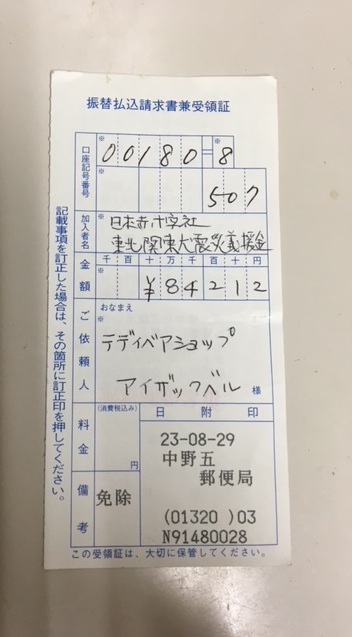 振替払込請求書兼受領証
口座記号番号
※
00180=8
※
507
加入者名
※
日本赤十字社
東北関東大震災義援金
金額
千百十万千百十円
※
¥84212
ご依頼人
おなまえ
※
テディベアショップ
アイザックベル 様
料金
(消費税込み)
円
日附印
23-08-29
中野五
郵便局
(01320 )03
N91480028
備考
免除
記載事項を訂正した場合は、その箇所に訂正印を押してください。
この受領証は、大切に保管してください。